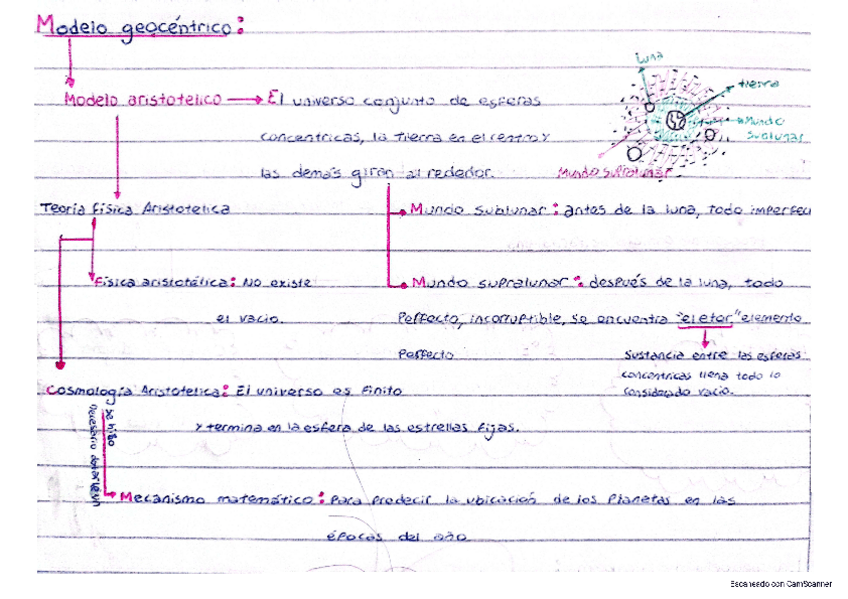 Modelo geocéntrico:
Luna
tierra
Modelo aristotelico → El universo conjunto de esferas
Mundo
sublunar
concentricas, la tierra en el centro y
las demás giran al rededor.
Mundo supralunar
Teoria física Aristotelica
Mundo sublunar: antes de la luna, todo imperfec
Física aristotélica: No existe
el vacio.
Mundo supralunar: después de la luna, todo
Perfecto, incorruptible, se encuentra "el eter" elemento
Perfecto
Sustancia entre las esferas
concentricas llena todo lo
considerado vacio.
Cosmología Aristotelica: El universo es finito
y termina en la esfera de las estrellas fijas.
se hizo
necesario
Mecanismo matemático: Para predecir la ubicación de los Planetas en las
épocas del año
Escaneado con CamScanner